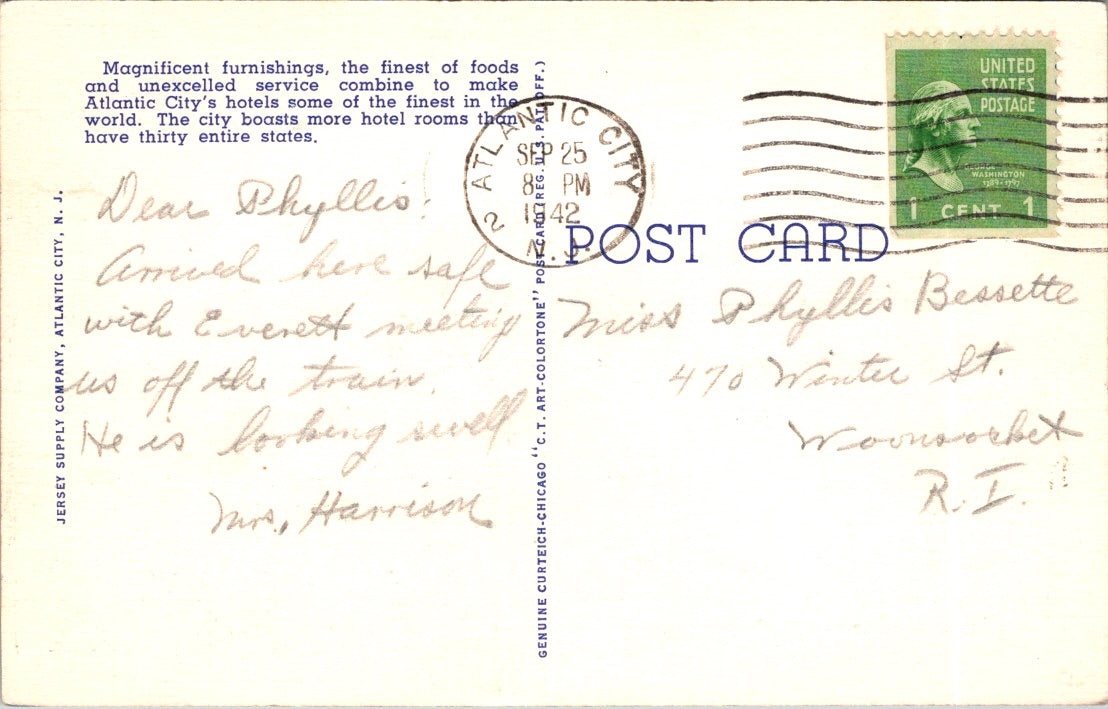 Magnificent furnishings, the finest of foods
and unexcelled service combine to make
Atlantic City's hotels some of the finest in the
world. The city boasts more hotel rooms than
have thirty entire states.
JERSEY SUPPLY COMPANY, ATLANTIC CITY, N. J.
Dear Phyllis:
Arrived here safe
with Everett meeting
us off the train.
He is looking swell
Mrs. Harrison
GENUINE CURTEICH-CHICAGO "C.T. ART-COLORTONE" POST CARD (REG. U.S. PAT. OFF.)
ATLANTIC CITY
2
SEP 25
8 - PM
1942
N.J.
UNITED
STATES
POSTAGE
GEORGE
WASHINGTON
1789-1797
1 CENT 1
POST CARD
Miss Phyllis Bessette
470 Winter St.
Woonsocket
R.I.